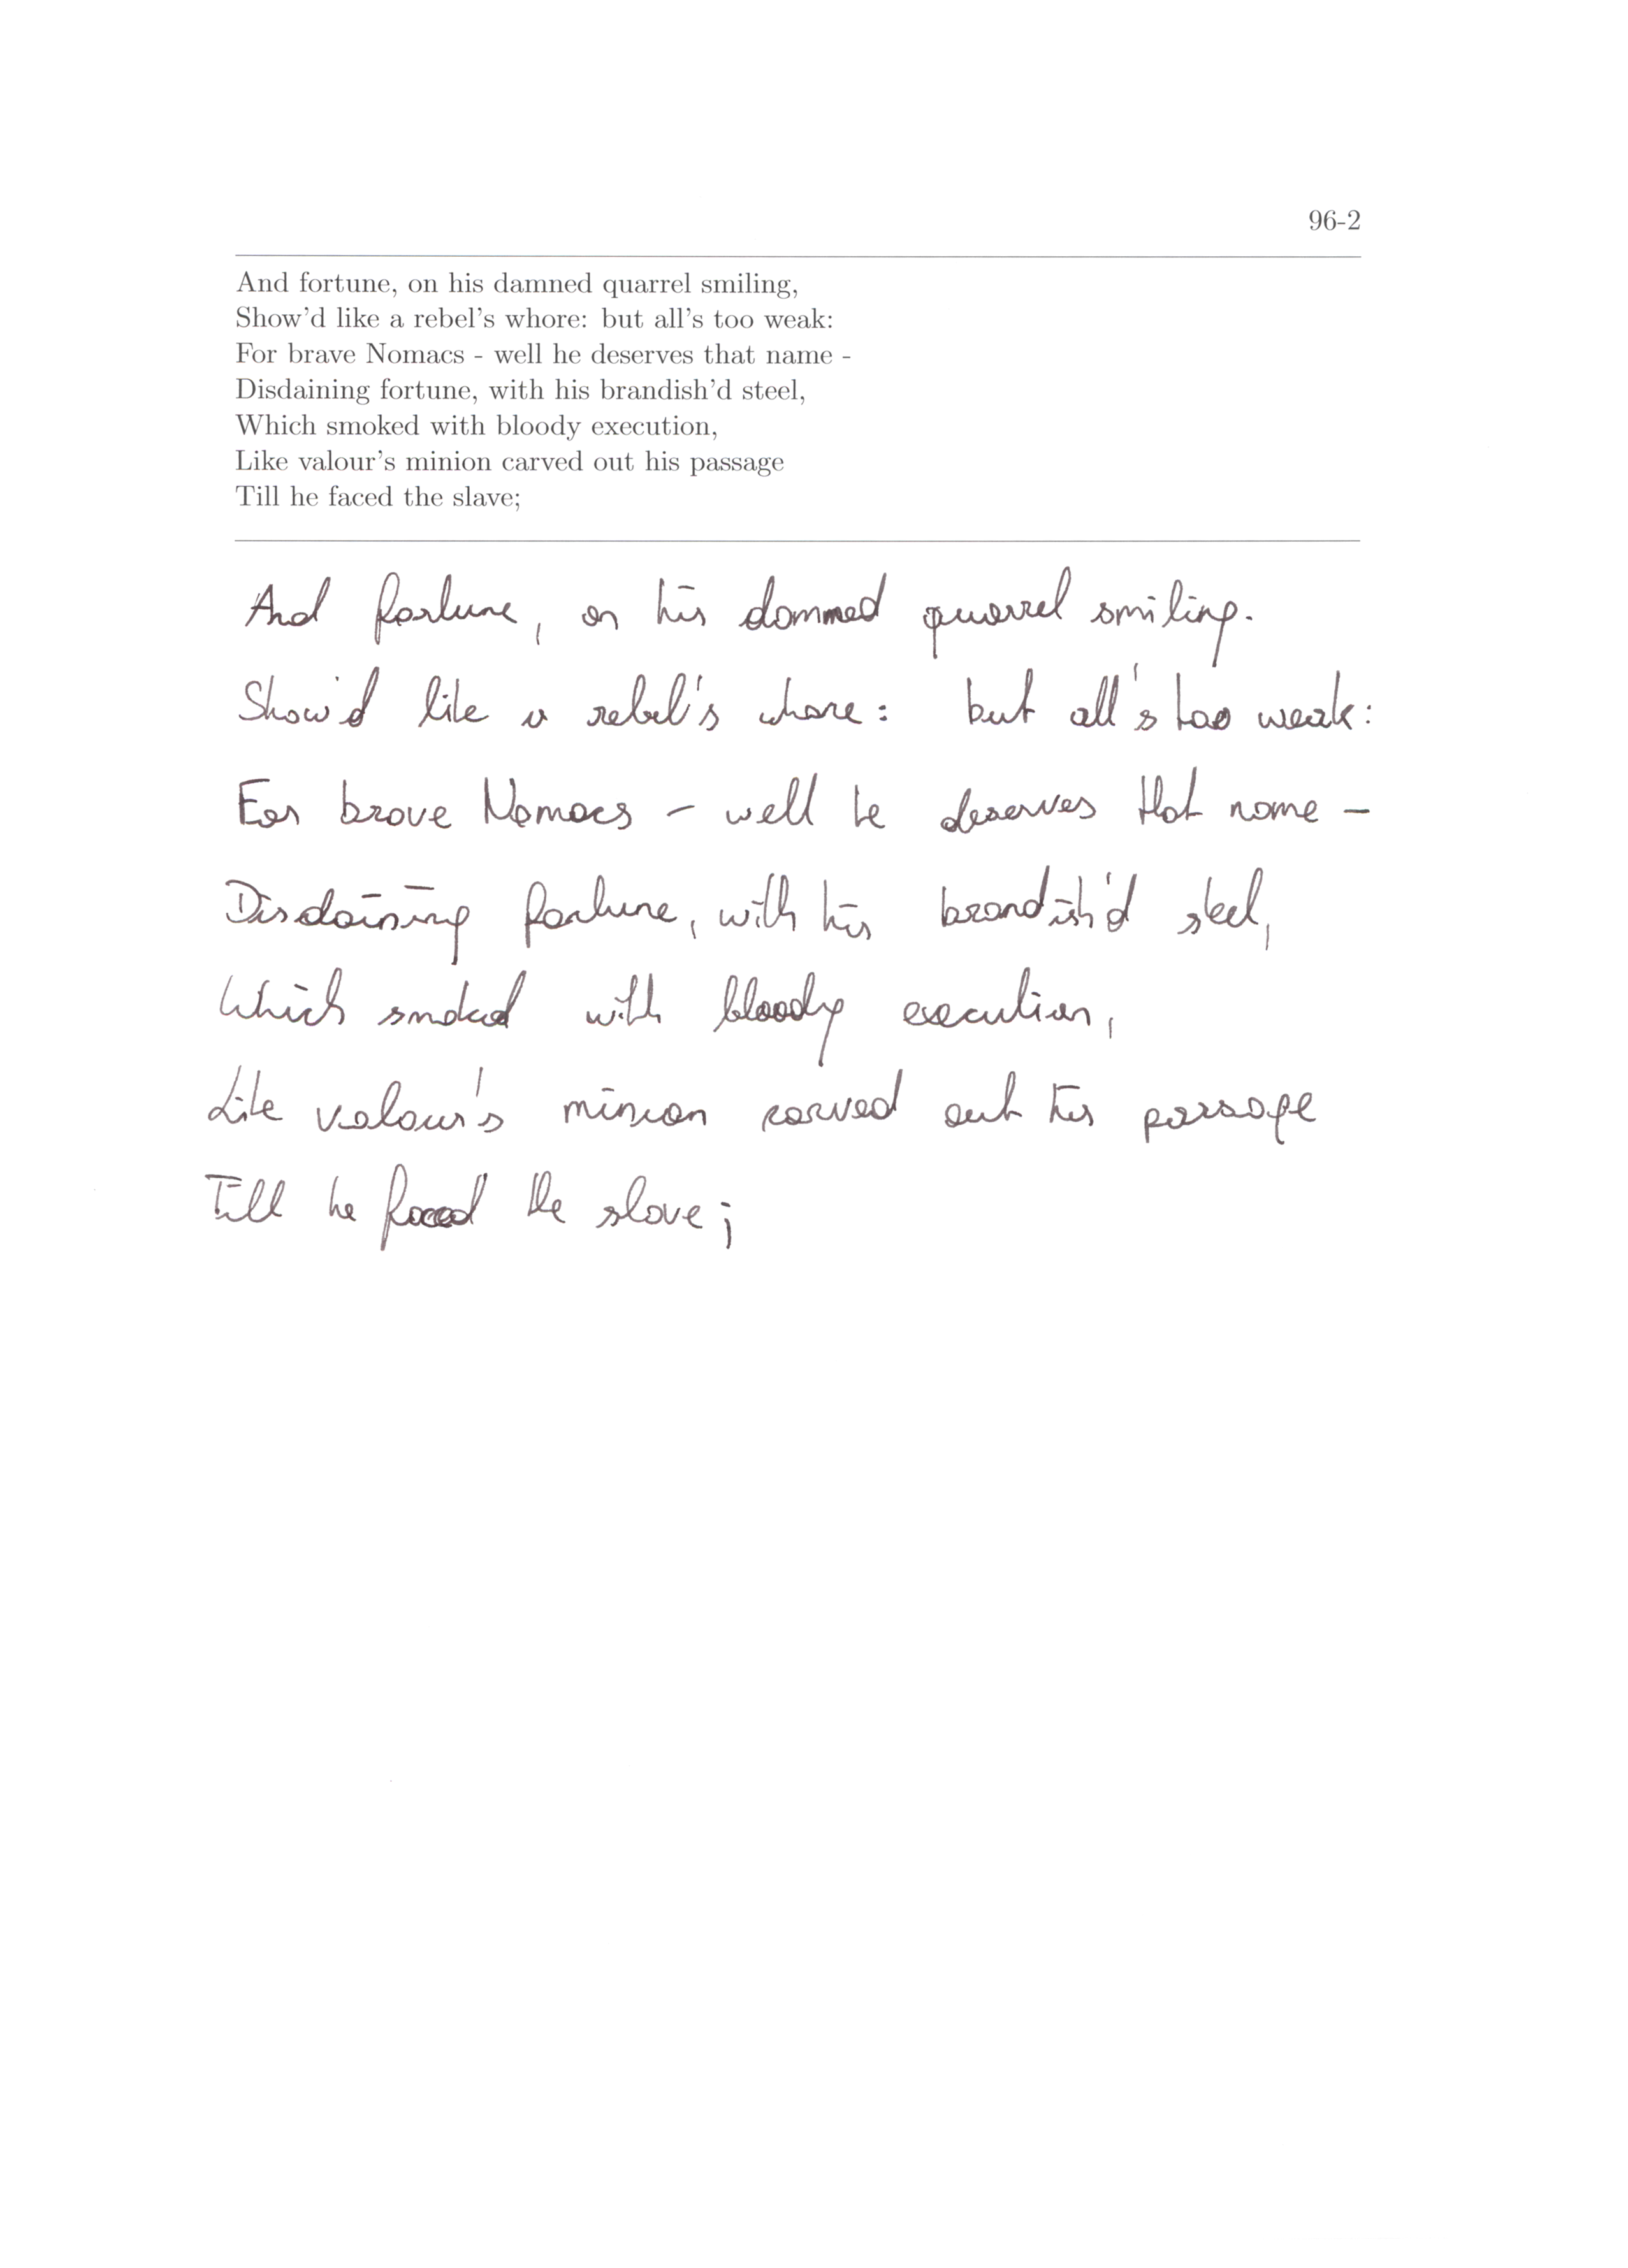 96-2
And fortune, on his damned quarrel smiling,
Show'd like a rebel's whore: but all's too weak:
For brave Nomacs - well he deserves that name -
Disdaining fortune, with his brandish'd steel,
Which smoked with bloody execution,
Like valour's minion carved out his passage
Till he faced the slave;
And fortune, on his dammed quarrel smiling.
Show'd like a rebel's whore: but all's too weak:
For brave Nomacs - well he deserves that name -
Disdaining fortune, with his brandish'd steel,
Which smoked with bloody execution,
Like valour's minion carved out his passage
Till he faced the slave;